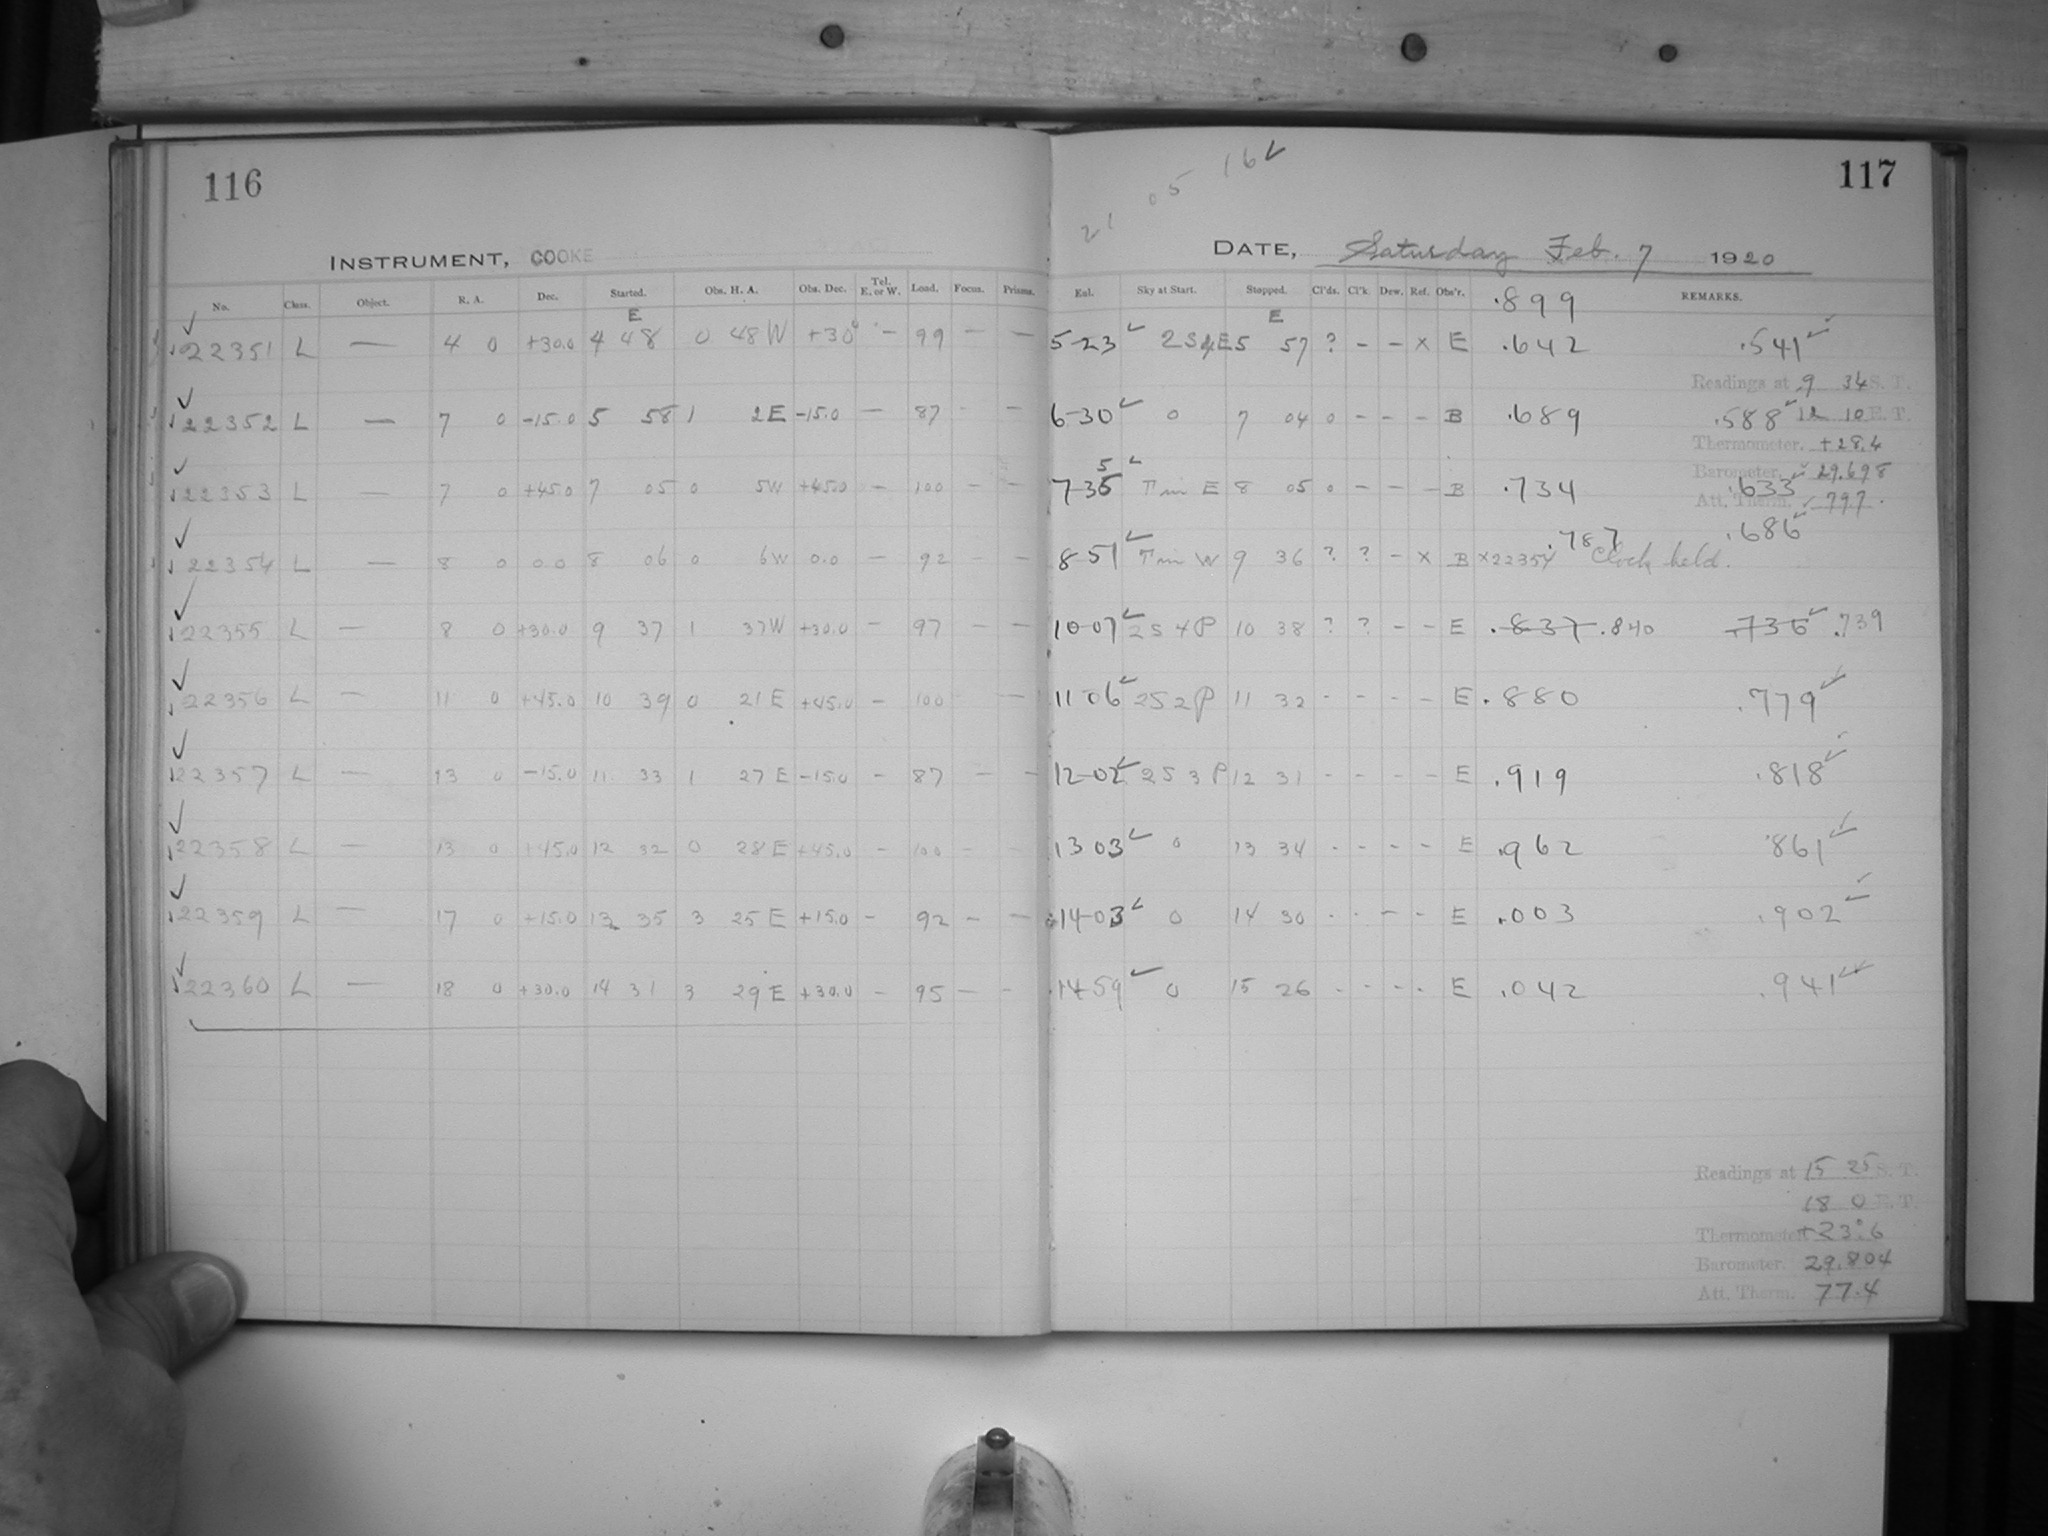 116
117
21 05 16 ✓
INSTRUMENT, COOKE
DATE, Saturday Feb. 7 1920
No. Class. Object. R. A. Dec. Started. Obs. H. A. Obs. Dec. Tel. E. or W. Load. Focus. Prisms. Eul. Sky at Start. Stopped. Cl'ds. Cl'k Dew. Ref. Obs'r. .899 REMARKS.
E E
22351 L — 4 0 +30.0 4 48 0 48 W +30 — 99 — — 5-23 ✓ 5 57 ? - - x E .642 .541 ✓
Readings at 9 34 S. T.
22352 L — 7 0 -15.0 5 58 1 2 E -15.0 — 87 - - 6-30 ✓ 0 7 04 0 - - - B .689 .588 ✓ 12 10 E. T.
Thermometer. +28.4
Barometer. 29.698
22353 L — 7 0 +45.0 7 05 0 5 W +45.0 - 100 - - 7-35 ✓ E 8 05 0 - - - B .734 .633 ✓
Att. Therm. 79.7
.787 .686 ✓
22354 L — 8 0 0.0 8 06 0 6 W 0.0 — 92 - - 8-51 ✓ W 9 36 ? ? - x B x22354 Clock held.
22355 L — 8 0 +30.0 9 37 1 37 W +30.0 - 97 - - 10-07 ✓ 2 S 4 P 10 38 ? ? - - E .837 .840 .736 ✓ .739
22356 L — 11 0 +45.0 10 39 0 21 E +45.0 - 100 - 11 06 ✓ 2 S 2 P 11 32 - - - - E .880 .779 ✓
22357 L — 13 0 -15.0 11 33 1 27 E -15.0 - 87 - - 12-02 ✓ 2 S 3 P 12 31 - - - - E .919 .818 ✓
22358 L — 13 0 +45.0 12 32 0 28 E +45.0 - 100 - - 13 03 ✓ 0 13 34 - - - - E .962 .861 ✓
22359 L — 17 0 +15.0 13 35 3 25 E +15.0 - 92 - - 14-03 ✓ 0 14 30 - - - - E .003 .902 ✓
22360 L — 18 0 +30.0 14 31 3 29 E +30.0 - 95 - - 14 59 ✓ 0 15 26 - - - - E .042 .941 ✓
Readings at 15 25 S. T.
18 0 E. T.
Thermometer +23.6
Barometer. 29.804
Att. Therm. 77.4